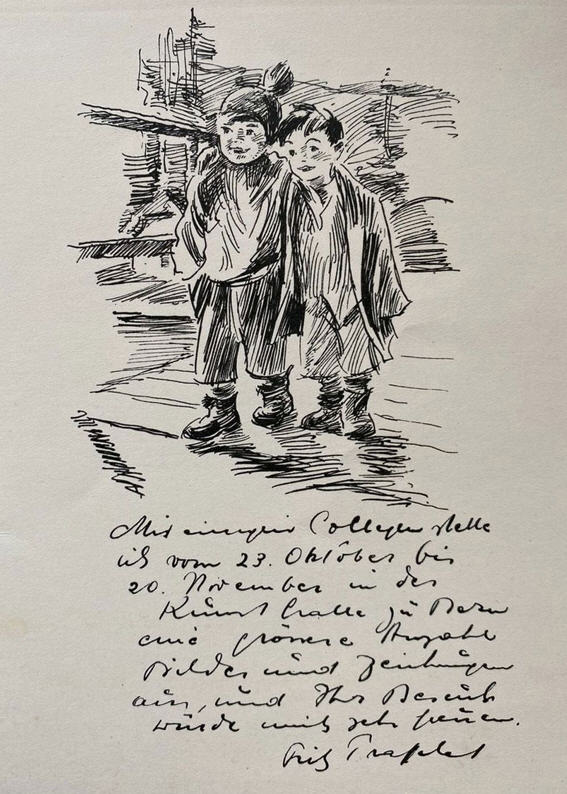 Mit einigen Collegen stelle
ich vom 23. Oktober bis
20. November in der
Kunsthalle zu Bern
eine grössere Anzahl
Bilder und Zeichnungen
aus, und Ihr Besuch
würde mich sehr freuen.
Fritz Traffelet